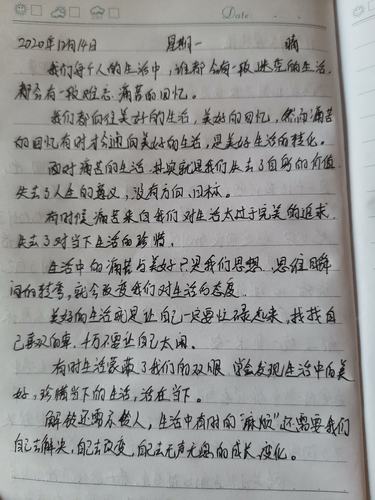 Date
2020年12月14日 星期一 晴
我们每个人的生活中，谁都会有一段迷茫的生活，
都会有一段难忘、痛苦的回忆。
我们都向往美好的生活，美好的回忆，然而痛苦
的回忆有时才会通向美好的生活，是美好生活的转化。
面对痛苦的生活，其实就是我们失去了自身的价值，
失去了人生的意义，没有方向、目标。
有时候痛苦来自我们对生活太过于完美的追求，
失去了对当下生活的珍惜。
生活中的痛苦与美好只是我们思想、思维瞬
间的转变，就会改变我们对生活的态度。
美好的生活就是让自己一定要忙碌起来，找找自
己喜欢的事，千万不要让自己太闲。
有时生活蒙蔽了我们的双眼，学会发现生活中的美
好，珍惜当下的生活，活在当下。
解铃还需系铃人，生活中有时的“麻烦”还需要我们
自己去解决，自己去改变，自己去无声无息的成长变化。